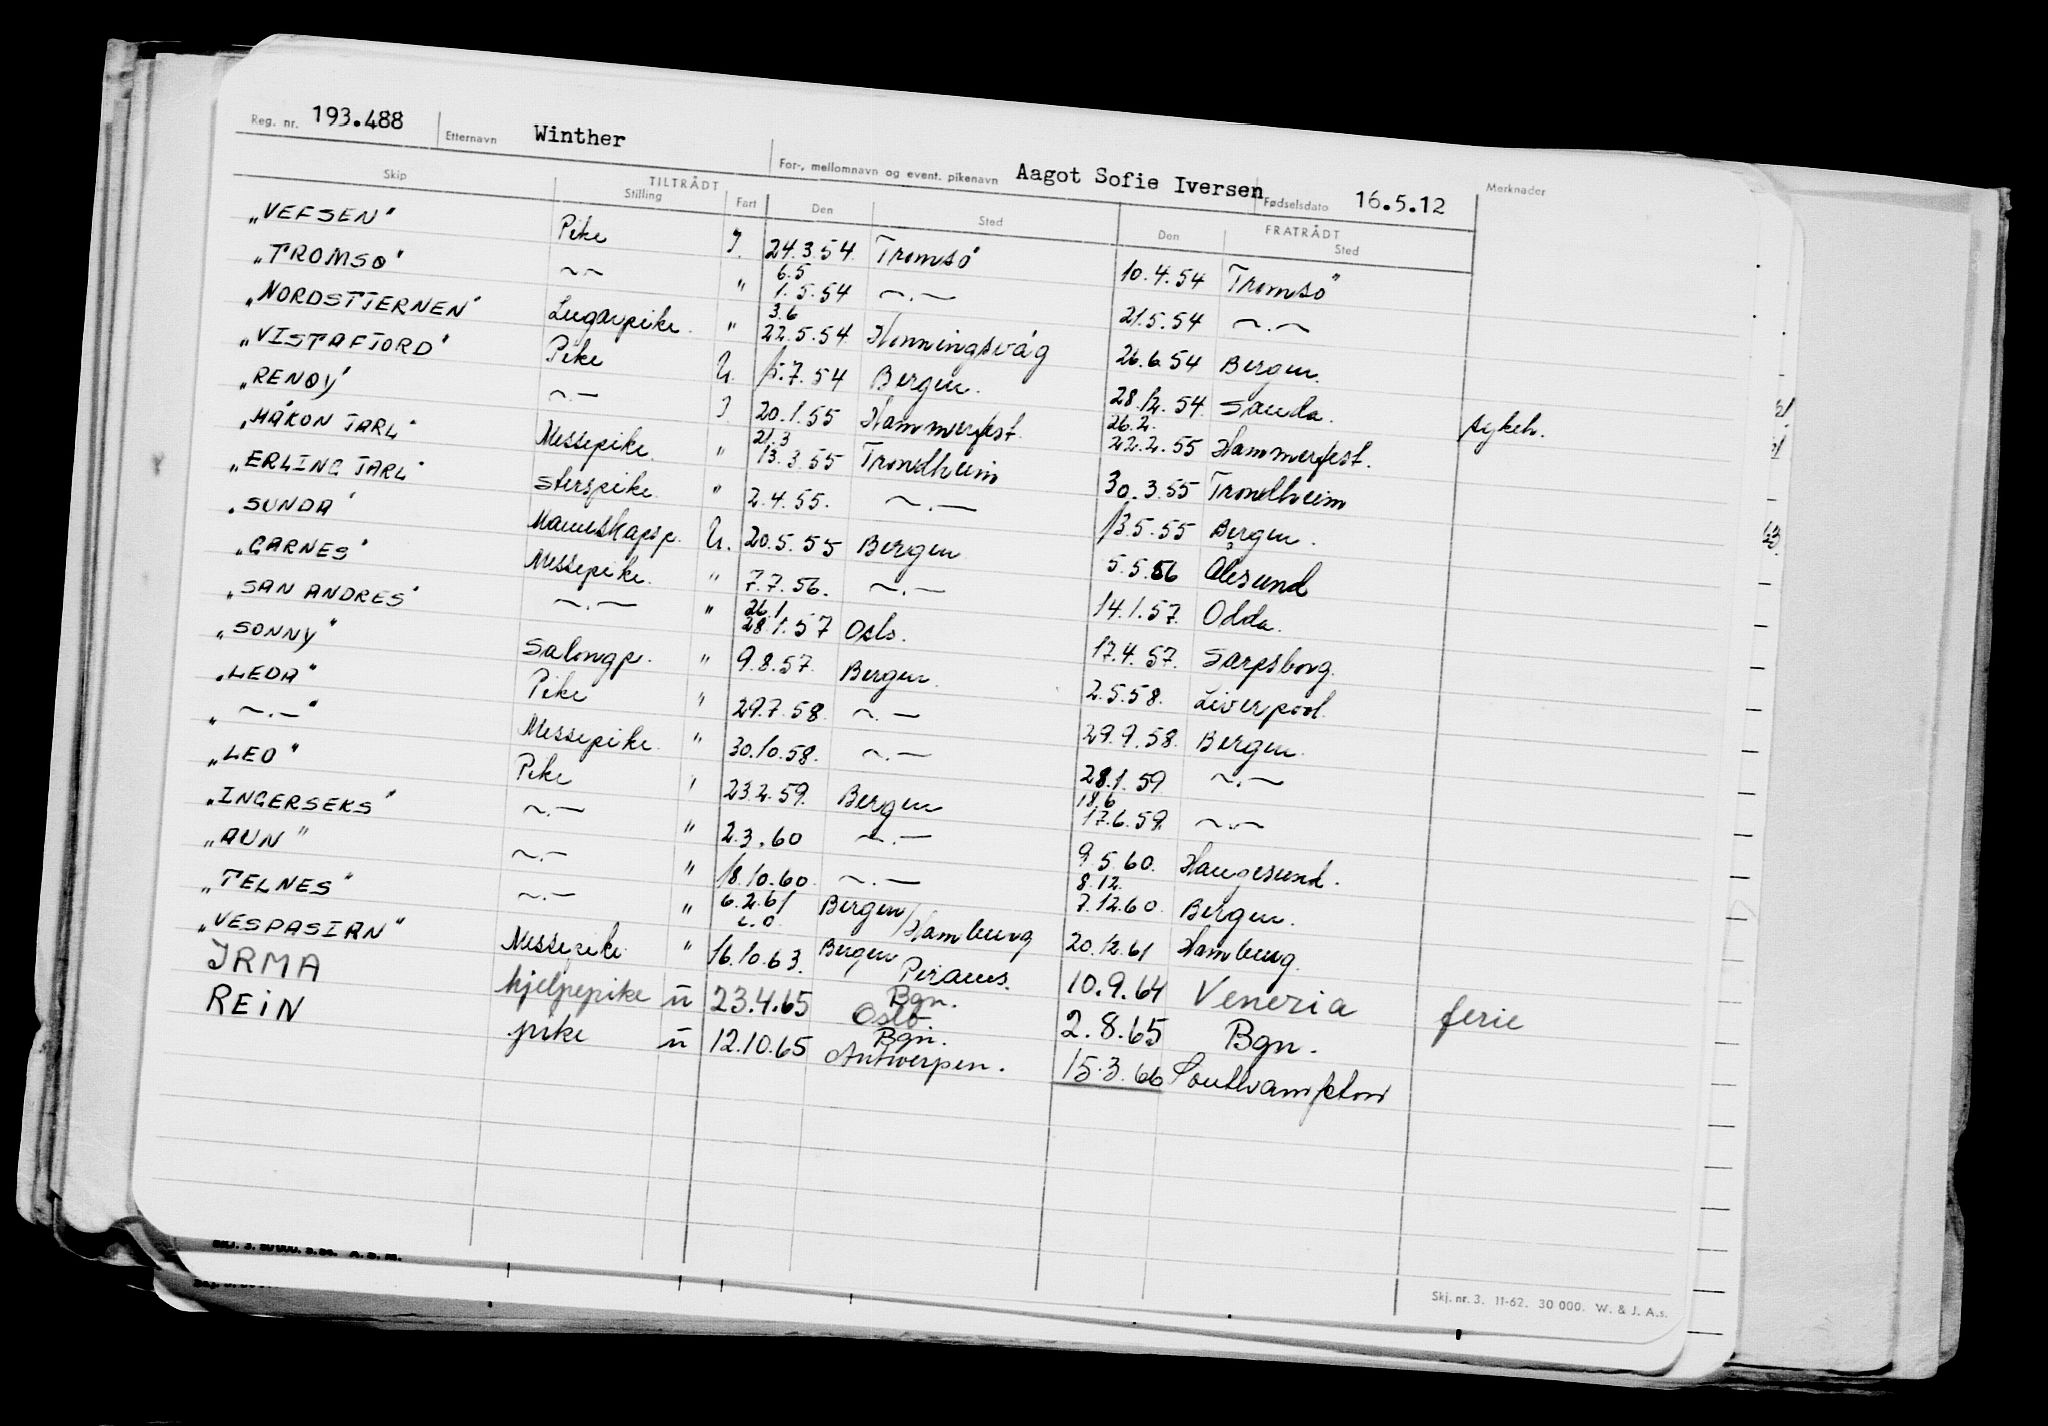 Reg. nr. 193.488 Etternavn Winther For-, mellomnavn og event. pikenavn Aagot Sofie Iversen Fødselsdato 16.5.12 Merknader
Skip TILTRÅDT FRATRÅDT
Stilling Fart Den Sted Den Sted
"VEFSEN" Pike I. 24.3.54. Tromsö 10.4.54 Tromsö
"TROMSØ" ~~ " 6.5 1.5.54 ~.— 21.5.54 ~.~
"NORDSTJERNEN" Lugarpike. " 3.6 22.5.54 Honningsvåg 26.6.54 Bergen.
"VISTAFJORD" Pike U. 15.7.54 Bergen. 28.12.54. Sauda. sykeh.
"RENØY" ~.— I 20.1.55 Hammerfest. 26.2. 22.2.55 Hammerfest.
"HÅKON JARL" Messepike. " 21.3 13.3.55 Trondheim 30.3.55 Trondheim
"ERLING JARL" Sterspike. " 2.4.55. ~.— 13.5.55 Bergen.
"SUNDA" Mannskapsp. U. 20.5.55 Bergen 5.5.56 Ålesund
"GARNES" Messepike. " 7.7.56. ~.— 14.1.57. Odda.
"SAN ANDRES" ~.— " 26.1 28.1.57 Oslo. 17.4.57. Sarpsborg.
"SONNY" Salongp. " 9.8.57. Bergen. 2.5.58. Liverpool.
"LEDA" Pike " 29.7.58. ~.— 29.9.58. Bergen.
"~.—" Messepike. " 30.10.58. ~.— 28.1.59 ~.—
"LEO" Pike " 23.2.59. Bergen 18.6 17.6.59. ~.~
"INGERSEKS" ~.— " 2.3.60 ~.— 9.5.60. Haugesund.
"AUN" ~.— " 18.10.60. ~.— 8.12. 7.12.60. Bergen.
"TELNES" ~.— " 6.2.61 Bergen/Hamburg 20.12.61 Hamburg.
"VESPASIAN" Messepike. " 16.10.63. Bergen Piraeus. 10.9.64 Venezia ferie
IRMA hjelpepike u 23.4.65 Bgn. Oslo. 2.8.65 Bgn.
REIN pike u 12.10.65 Bgn. Antwerpen. 15.3.66 Southampton
Skj. nr. 3. 11-62. 30 000. W. & J. A.s.